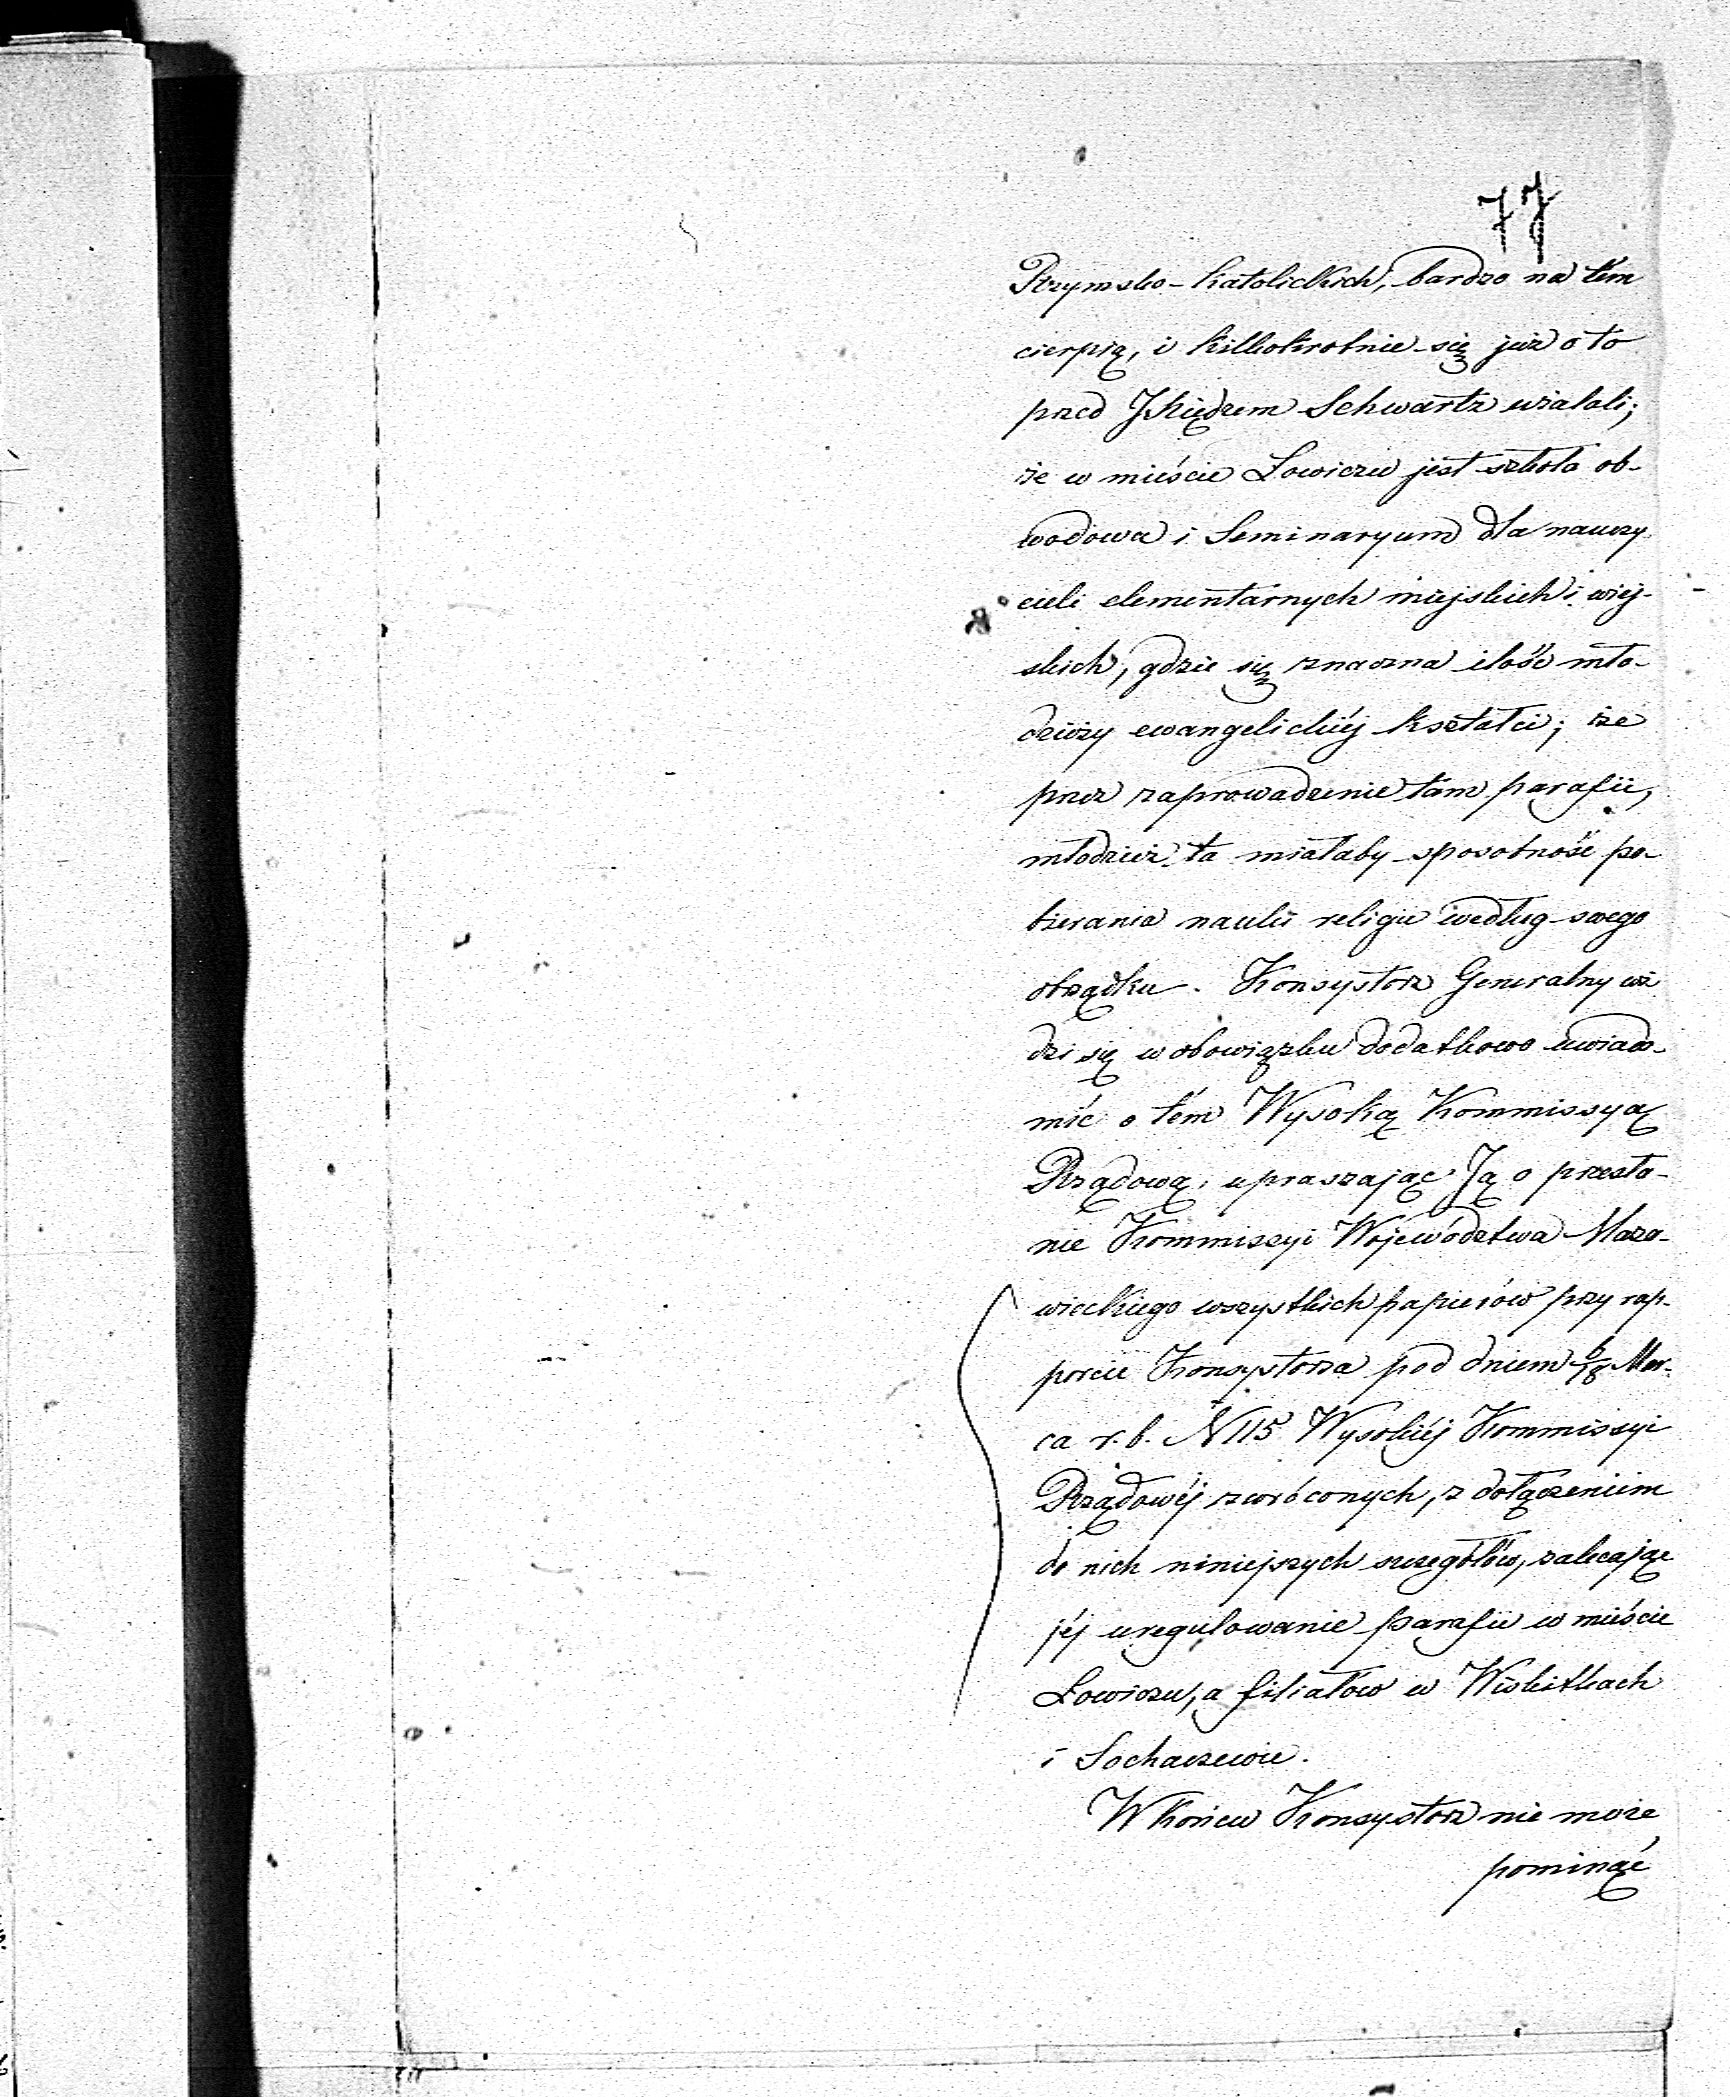 77
Rzymsko-Katolickich, bardzo na tém
cierpią, i kilkokrotnie się już o to
przed JXiędzem Schwartz użalali;
że w mieście Łowiczu jest szkoła ob-
wodowa i Seminaryum dla nauczy
cieli elementarnych miejskich i wiej-
skich, gdzie się znaczna ilość mło-
dzieży ewangelickiéj kształci; że
przez zaprowadzenie tam parafii,
młodzież ta miałaby sposobność po-
bierania nauki religii według swego
obrządku. Konsystorz Generalny wi
dzi się w obowiązku dodatkowo uwiado-
mić o tém Wysoką Kommissyą
Rządową, upraszając Ją o przesła-
nie Kommissyi Województwa Mazo-
wieckiego wszystkich papierów przy rap-
porcie Konsystorza pod dniem 6/18 Mar-
ca r. b. N 115 Wysokiéj Kommissyi
Rządowéj zwróconych, z dołączeniem
do nich niniejszych szczegółów, zalecając
jéj uregulowanie parafii w mieście
Łowiczu, a filiałów w Wiskitkach
i Sochaczewie.
W końcu Konsystorz nie może
pominąć